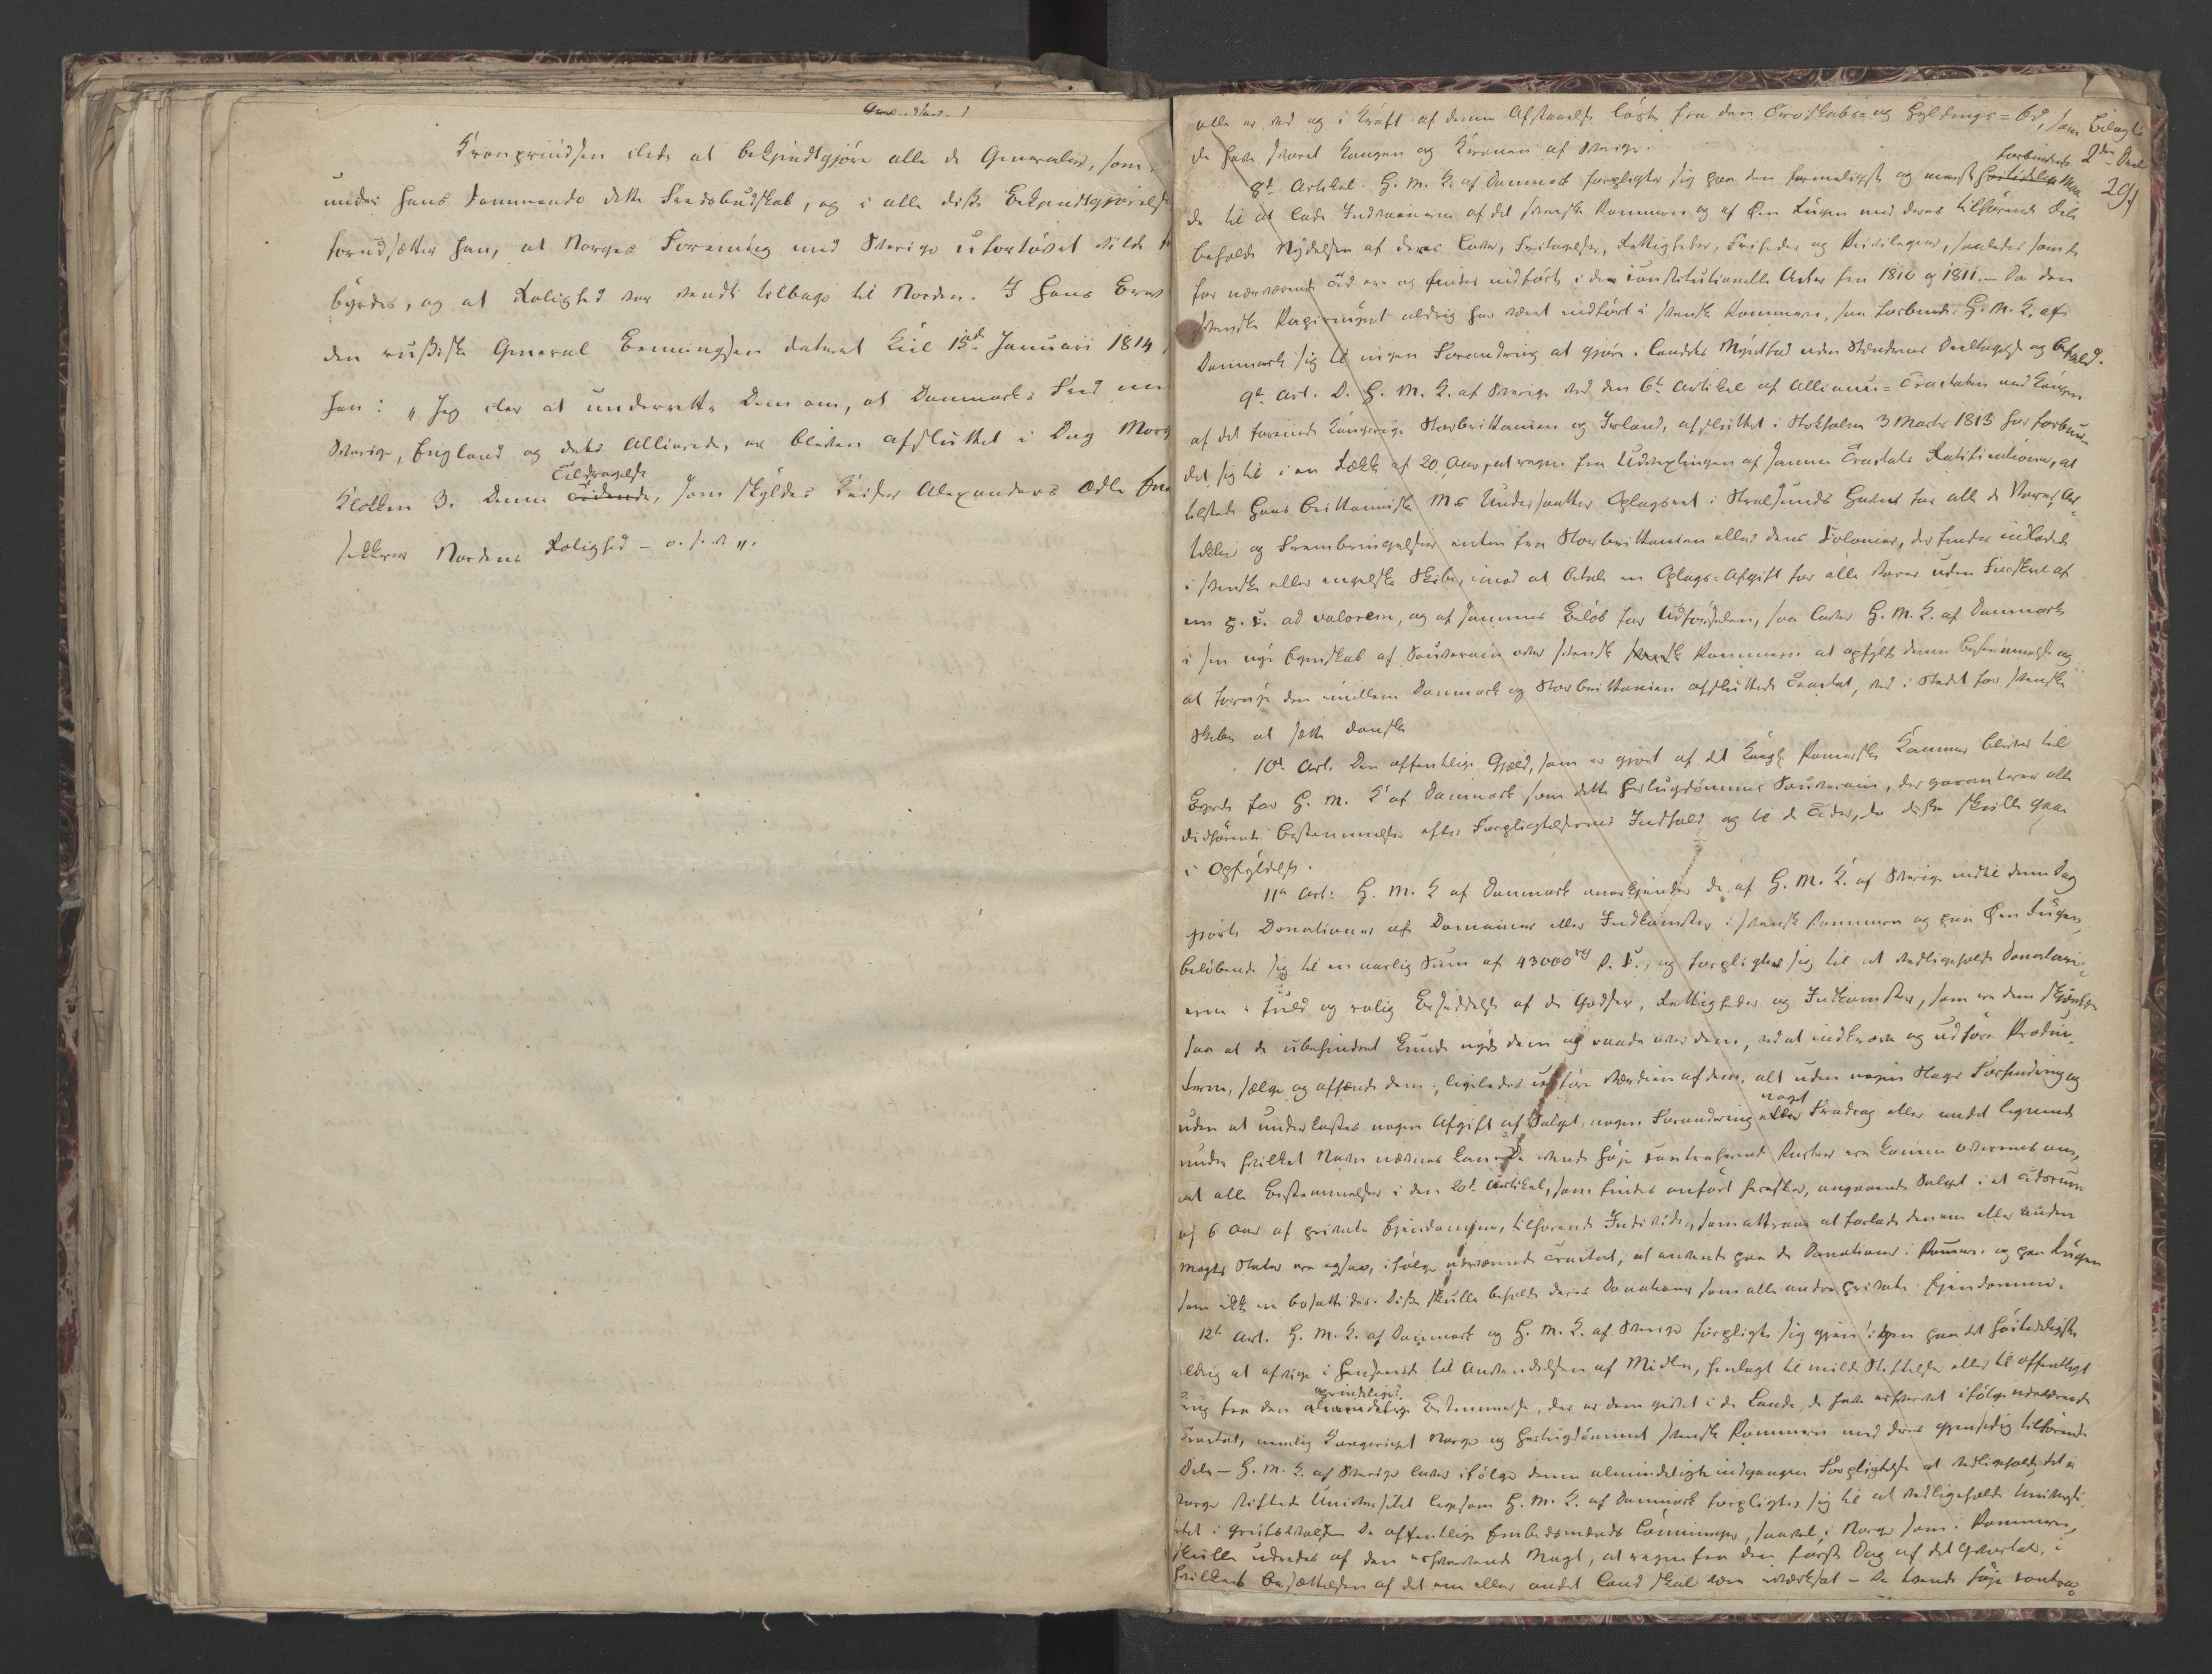 Kronprindsen ilede at bekjendtgjöre alle de Generaler, som
under hans Commando dette Fredsbudskab, og i alle disse Bekjendtgjörelse
forudsætter han, at Norges Forening med Sverige ufortövet vilde
byrdes, og at Rolighed var vendt tilbage til Norden. I hans Brev
den russiske General Benningsen dateret Kiel 15de Januari 1814,
han: „Jeg iler at underrette Dem om, at Danmarks Fred
Sverige, England og dets Allierede, er bleven afsluttet i Dag Morg
Klokken 3. Denne Tildragelse Tidende, som skyldes Keiser Alexanders ædle
sikkrer Nordens Rolighed – o.s.v.".
alle er ved og i Kraft af denne Afstaaelse löste fra den Troskabs= og Hyldings=Ed, som
de have svoret Kongen og Kronen af Sverige.
Bilag til
2den Deel
291
8de Artikel. H. M. K. af Danmark forpligter sig paa den formeligste og meest forbindende Maa
de til at lade Indvaanerne af det svenske Pommern og af Öen Rügen med deres tilhörende Dele
beholde Nydelsen af deres Love, Fritagelser, Rettigheder, Friheder og Privilegier, saaledes som de
for nærværende Tid ere og findes indförte i de constitutionelle Acter fra 1810 og 1811. – Da den
svenske Papirmynt aldrig har været indfört i svensk Pommern, saa forbinder H. M. K. af
Danmark sig til ingen Forandring at gjöre i Landets Myntfod uden Stændernes Deeltagelse og Befald.
9de Art. D. H. M. K. af Sverige ved den 6te Artikel af Alliance=Tractaten med Kongen
af det forenede Kongerige Storbrittanien og Irland, afsluttet i Stokholm 3 Marts 1813 har forbun
det sig til i en Række af 20 Aar, at regne fra Udvexlingen af samme Tractats Ratificationer, at
tilstede Hans Brittanniske Ms Undersaatter Oplagsret i Stralsunds Havn for alle de Varer, Ar=
tikler og Frembringelser enten fra Storbrittanien eller dens Colonier, der findes indladede
i svenske eller engelske Skibe, imod at betale en Oplags=Afgift for alle Varer uden Forskiel af
een p. C. ad valorem, og af samme Belöb for Udförselen, saa lover H. M. K. af Danmark
i sin nye Egenskab af Souverain over svensk svensk Pommern at opfylde denne Bestemmelse og
at fornye den imellem Danmark og Storbrittanien afsluttede Tractat, ved i Stedet for svenske
Skibe at sætte danske
10de Art. Den offentlige Gjæld, som er gjort af det Kongl. Pommerske Kammer bliver til
Byrde for H. M. K. af Danmark som dette Hertugdömmes Souverain, der garanterer alle
didhörende Bestemmelser efter Forpligtelsernes Indhold og til de Tider, da disse skulle gaae
i Opfyldelse.
11te Art: H. M. K af Danmark anerkjender de af H. M. K. af Sverige indtil denne Dag
gjorte Donationer af Domainer eller Indkomster i svensk Pommern og paa Öen Rügen,
belöbende sig til en aarlig Sum af 43000 og forpligter sig til at vedligeholde Donatari=
erne i fuld og rolig Besiddelse af de Godser, Rettigheder og Indkomster, som ere dem skjænkede
saa at de ubehindret kunde nyde dem og raade over dem, ved at indkræve og udföre Produc
terne, sælge og afhænde dem, ligeledes udföre Værdien af dem, alt uden nogen Slags Forhindring og
uden at underkastes nogen Afgift af Salget, nogen Forandring eller noget Fradrag eller andet lignende
under hvilket Navn nævnes kan. De tvende höje contraherende Parter ere komne overeens om,
at alle Bestemmelser i den 20de Artikel, som findes anfört herefter, angaaende Salget i et Tidsrum
af 6 Aar af private Ejendomme, tilhörende Individer, som attraae at forlade den ene eller anden
Magts Stater ere ogsaa, ifölge nærværende Tractat, at anvende paa de Donationer i Pommern og paa Rügen
som ikke ere bosatte der. Disse skulle beholde deres Donationer som alle andre private Ejendomme.
12te Art. H. M. K. af Danmark og H. M. K. af Sverige forpligte sig gjensidigen paa det höitideligste
aldrig at afvige i Henseende til Anvendelsen af Midler, henlagt til milde Stiftelser eller til offentligt
Brug fra den oprindelige almindelige Bestemmelse, der er dem givet i de Lande, de have erhvervet ifölge nærværende
Tractat, nemlig Kongeriget Norge og Hertugdömmet svensk Pommern med deres gjensidig tilhörende
Dele – H. M. K. af Sverige lover ifölge denne almindelige indgangne Forpligtelse at vedligeholde det i
Norge stiftede Universitet ligesom H. M. K. af Danmark forpligter sig til at vedligeholde Universi
tetet i Greifswalde. De offentlige Embedsmænds Lönninger, saavel i Norge som i Pommern,
skulle udredes af den erhvervende Magt, at regne fra den förste Dag af det Qvartal, i
hvilket Besættelsen af det ene eller andet Land skal være værksat – De tvende höje contra=